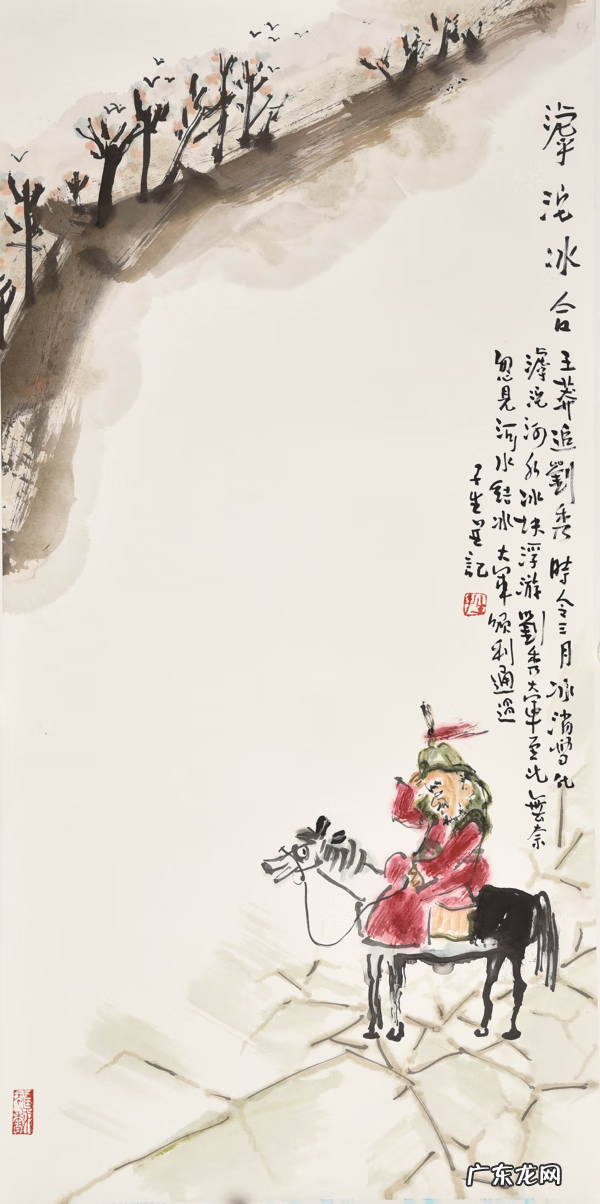 滹沱冰合
王莽追劉秀時令三月冰消雪化
滹沱河水冰快浮游劉秀大軍至此無奈
忽見河水結冰大軍順利通過
子生並記
广东龙网